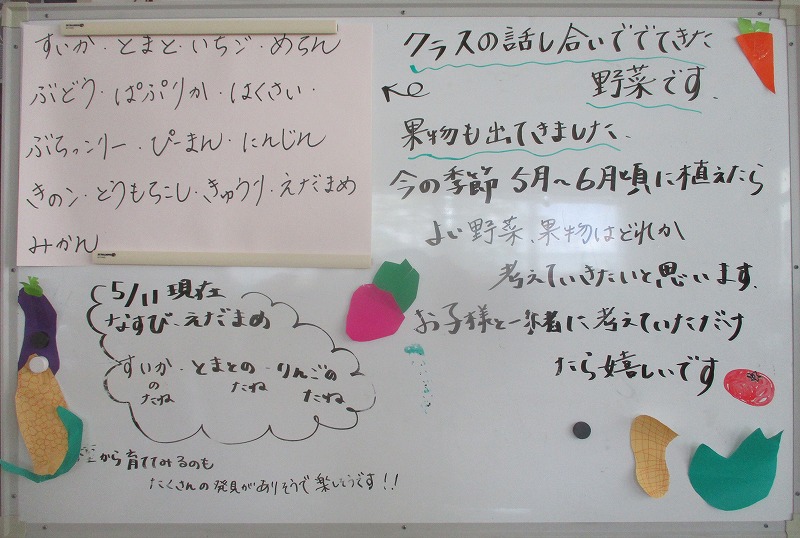 すいか・とまと・いちご・めろん
ぶどう・ぱぷりか・はくさい・
ぶろっこりー・ぴーまん・にんじん
きのこ・とうもろこし・きゅうり・えだまめ
みかん
クラスの話し合いででてきた
野菜です.
果物も出てきました.
今の季節 5月〜6月頃に植えたら
よい野菜、果物はどれか
考えていきたいと思います.
お子様と一緒に考えていただけ
たら嬉しいです
5/11 現在
なすび、えだまめ
すいかのたね・とまとのたね・りんごのたね
種から育ててみるのも
たくさんの発見がありそうで楽しそうです!!